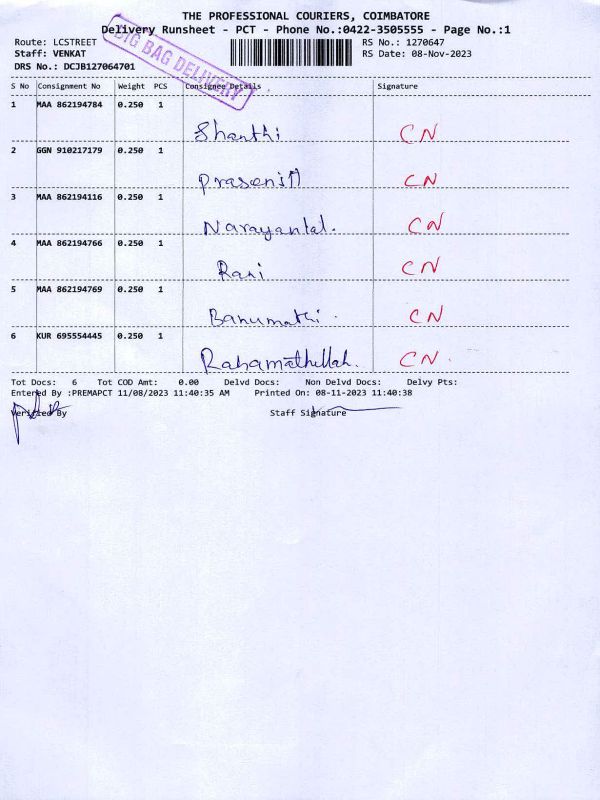 THE PROFESSIONAL COURIERS, COIMBATORE
Delivery Runsheet - PCT - Phone No.:0422-3505555 - Page No.:1
Route: LCSTREET RS No.: 1270647
Staff: VENKAT RS Date: 08-Nov-2023
DRS No.: DCJB127064701
BIG BAG DELIVERY
S No Consignment No Weight PCS Consignee Details Signature
1 MAA 862194784 0.250 1
Shanthi CN
2 GGN 910217179 0.250 1
CN
3 MAA 862194116 0.250 1
Narayanlal. CN
4 MAA 862194766 0.250 1
Rani CN
5 MAA 862194769 0.250 1
Banumathi. CN
6 KUR 695554445 0.250 1
Rahamathullah. CN.
Tot Docs: 6 Tot COD Amt: 0.00 Delvd Docs: Non Delvd Docs: Delvy Pts:
Entered By :PREMAPCT 11/08/2023 11:40:35 AM Printed On: 08-11-2023 11:40:38
Verified By Staff Signature